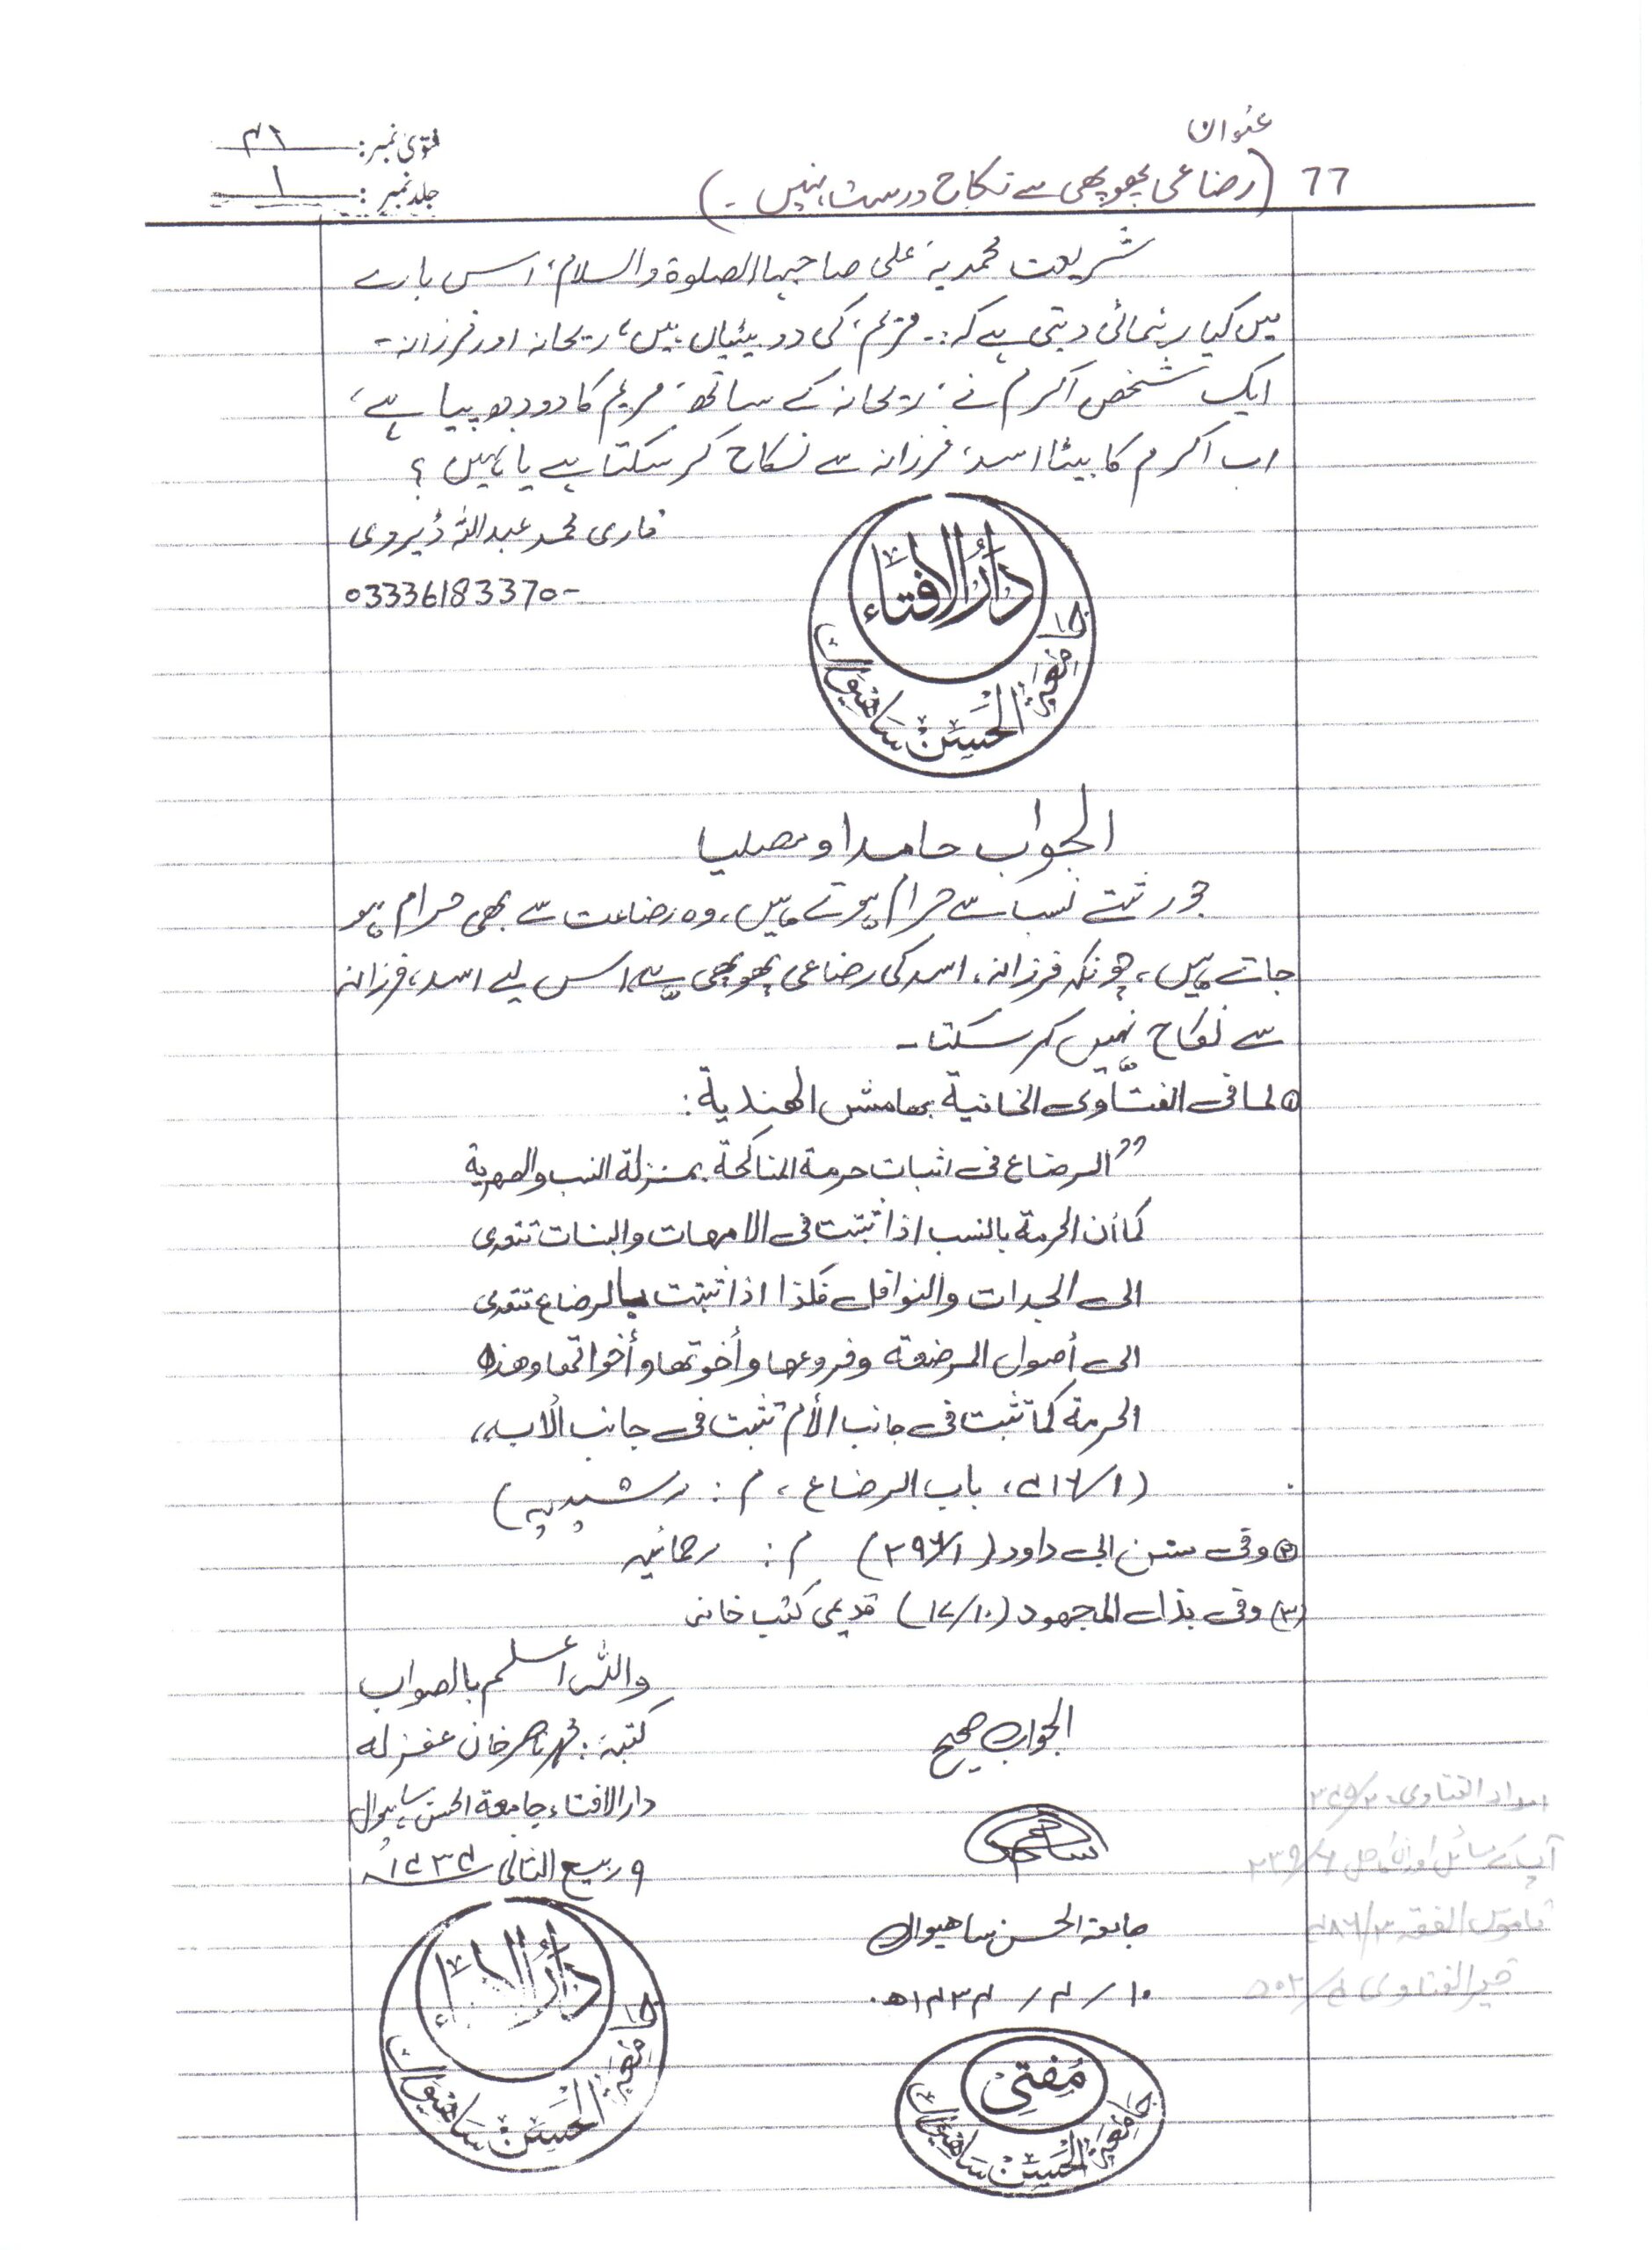 عنوان
۶۶ (رضاعی پھوپھی سے نکاح درست نہیں۔)
فتویٰ نمبر: ۴۱
جلد نمبر: ۱
شریعت محمدیہ علی صاحبہا الصلوۃ والسلام، اس بارے
میں کیا رہنمائی دیتی ہے کہ:۔ مریم، کی دو بیٹیاں ہیں، ریحانہ اور فرزانہ۔
ایک شخص اکرم نے، ریحانہ کے ساتھ، مریم کا دودھ پیا ہے،
اب اکرم کا بیٹا اسد، فرزانہ سے نکاح کر سکتا ہے یا نہیں؟
قاری محمد عبداللہ ڈیروی
03336183370-
دَارُ الافتَاء
جَامعَۃُ الحَسَن سَاهیوَال
الجواب حامدا و مصلیا
جو رشتے نسب سے حرام ہوتے ہیں، وہ رضاعت سے بھی حرام ہو
جاتے ہیں، چونکہ فرزانہ، اسد کی رضاعی پھوپھی ہے، اس لیے اسد، فرزانہ
سے نکاح نہیں کر سکتا۔
① لما فی الفتاوی الخانیة بهامش الهندیة:
”الرضاع فی اثبات حرمة المناکحة بمنزلة النسب والصهریة
کما أن الحرمة بالنسب اذا ثبتت فی الامهات والبنات تتعدی
الی الجدات والنوافل فکذا اذا ثبتت بالرضاع تتعدی
الی أصول المرضعة وفروعها وأخوتها وأخواتها وهذه
الحرمة کما تثبت فی جانب الأم تثبت فی جانب الأب،،
(۴۱۶/۱، باب الرضاع، م: رشیدیہ)
② وفی سنن ابی داود (۲۹۶/۱) م: رحمانیہ
(۳) وفی بذل المجهود (۱۷/۱۰) قدیمی کتب خانہ
واللہ اعلم بالصواب
کتبہ: محمد ناصر خان غفرلہ
دارالافتاء جامعة الحسن ساہیوال
۹ ربیع الثانی ۱۴۳۴ھ
الجواب صحیح
جامعة الحسن ساهیوال
۱۰/۴/۱۴۳۴ھ
امداد الفتاوی
آپ کے مسائل اور ان کا حل
قاموس الفقہ
خیر الفتاوی
دَارُ الافتَاء
جَامعَۃُ الحَسَن سَاهیوَال
مُفتِی
جَامعَۃُ الحَسَن سَاهیوَال